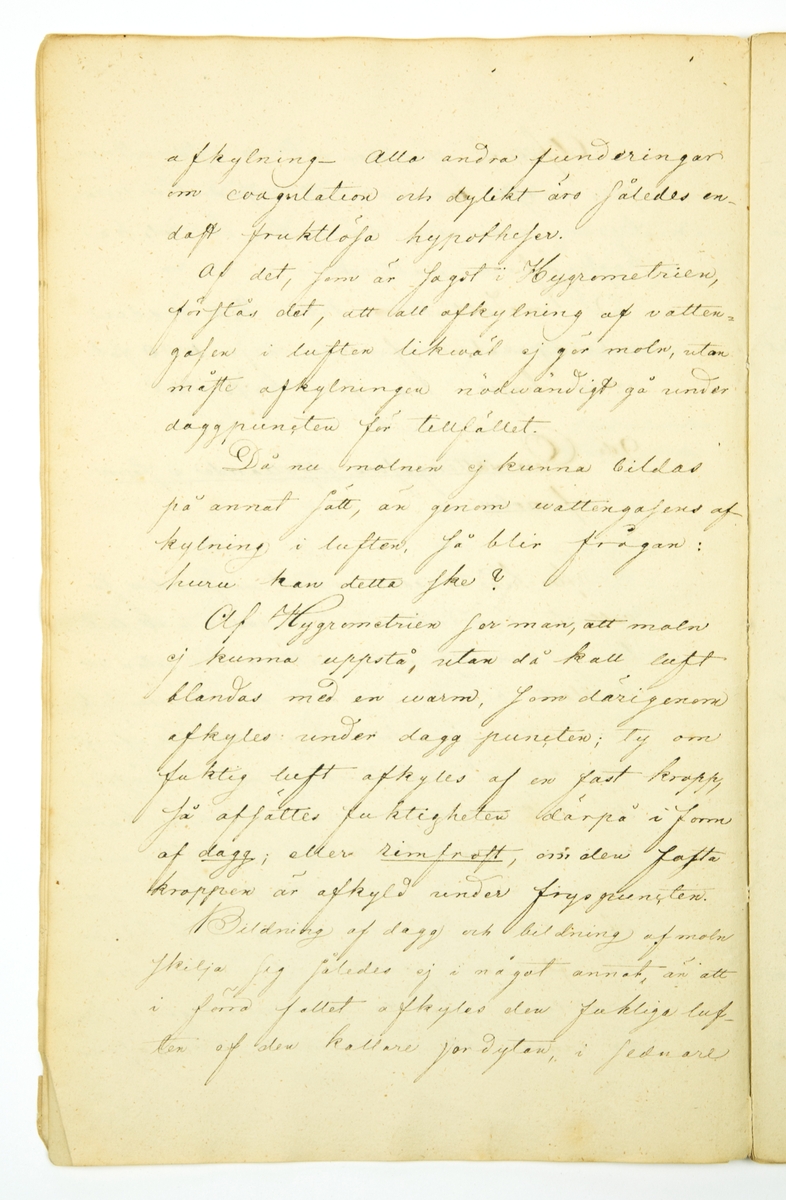 afkylning – Alla andra funderingar
om coagulation och dylikt äro således en-
dast fruktlösa hypotheser.
Af det, som är sagdt i Hygrometrien,
förstås det, att all afkylning af vatten=
gasen i luften likwäl ej gör moln, utan
måste afkylningen nödwändigt gå under
daggpuncten för tillfället.
Då nu molnen ej kunna bildas
på annat sätt, än genom wattengasens af
kylning i luften, så blir frågan:
huru kan detta ske?
Af Hygrometrien ser man, att moln
ej kunna uppstå, utan då kall luft
blandas med en warm, som därigenom
afkyles under dagg puncten; ty om
fuktig luft afkyles af en fast kropp,
så afsättes fuktigheten därpå i form
af dagg; eller rimfrost, om den fasta
kroppen är afkyld under fryspuncten.
Bildning af dagg och bildning af moln
skilja sig således ej i något annat, än att
i förra fallet afkyles den fuktiga luf-
ten af den kallare jordytan, i sednare